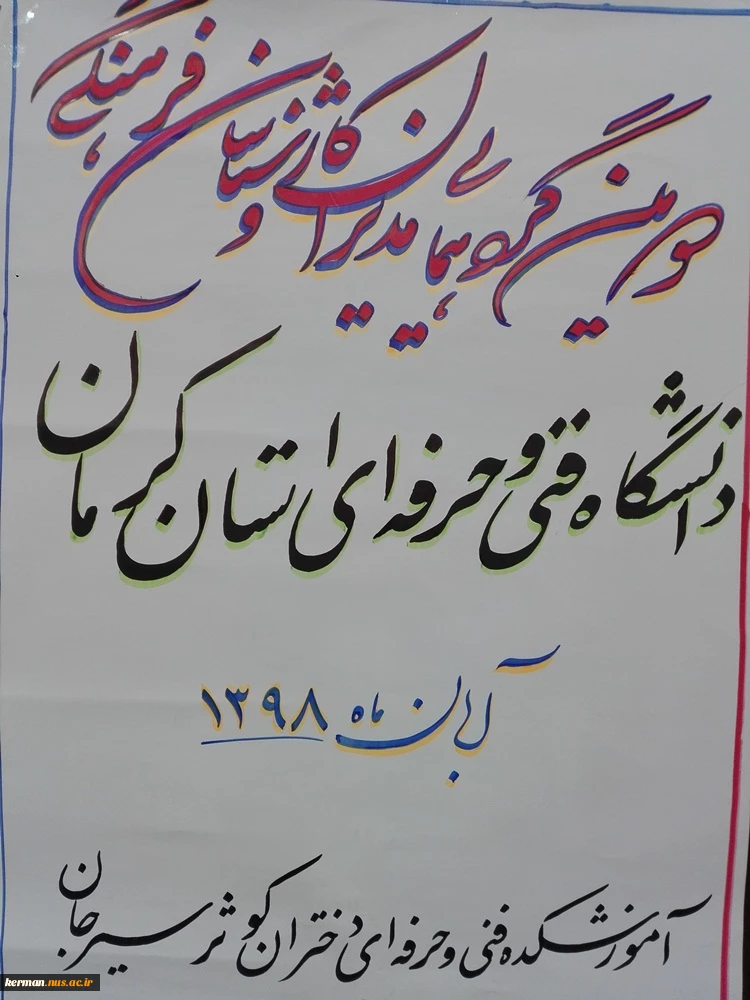 دومین گردهمایی مدیران و کارشناسان فرهنگی
دانشگاه فنی و حرفه ای استان کرمان
آبان ماه ۱۳۹۸
آموزشکده فنی و حرفه ای دختران کوثر سیرجان
kerman.nus.ac.ir